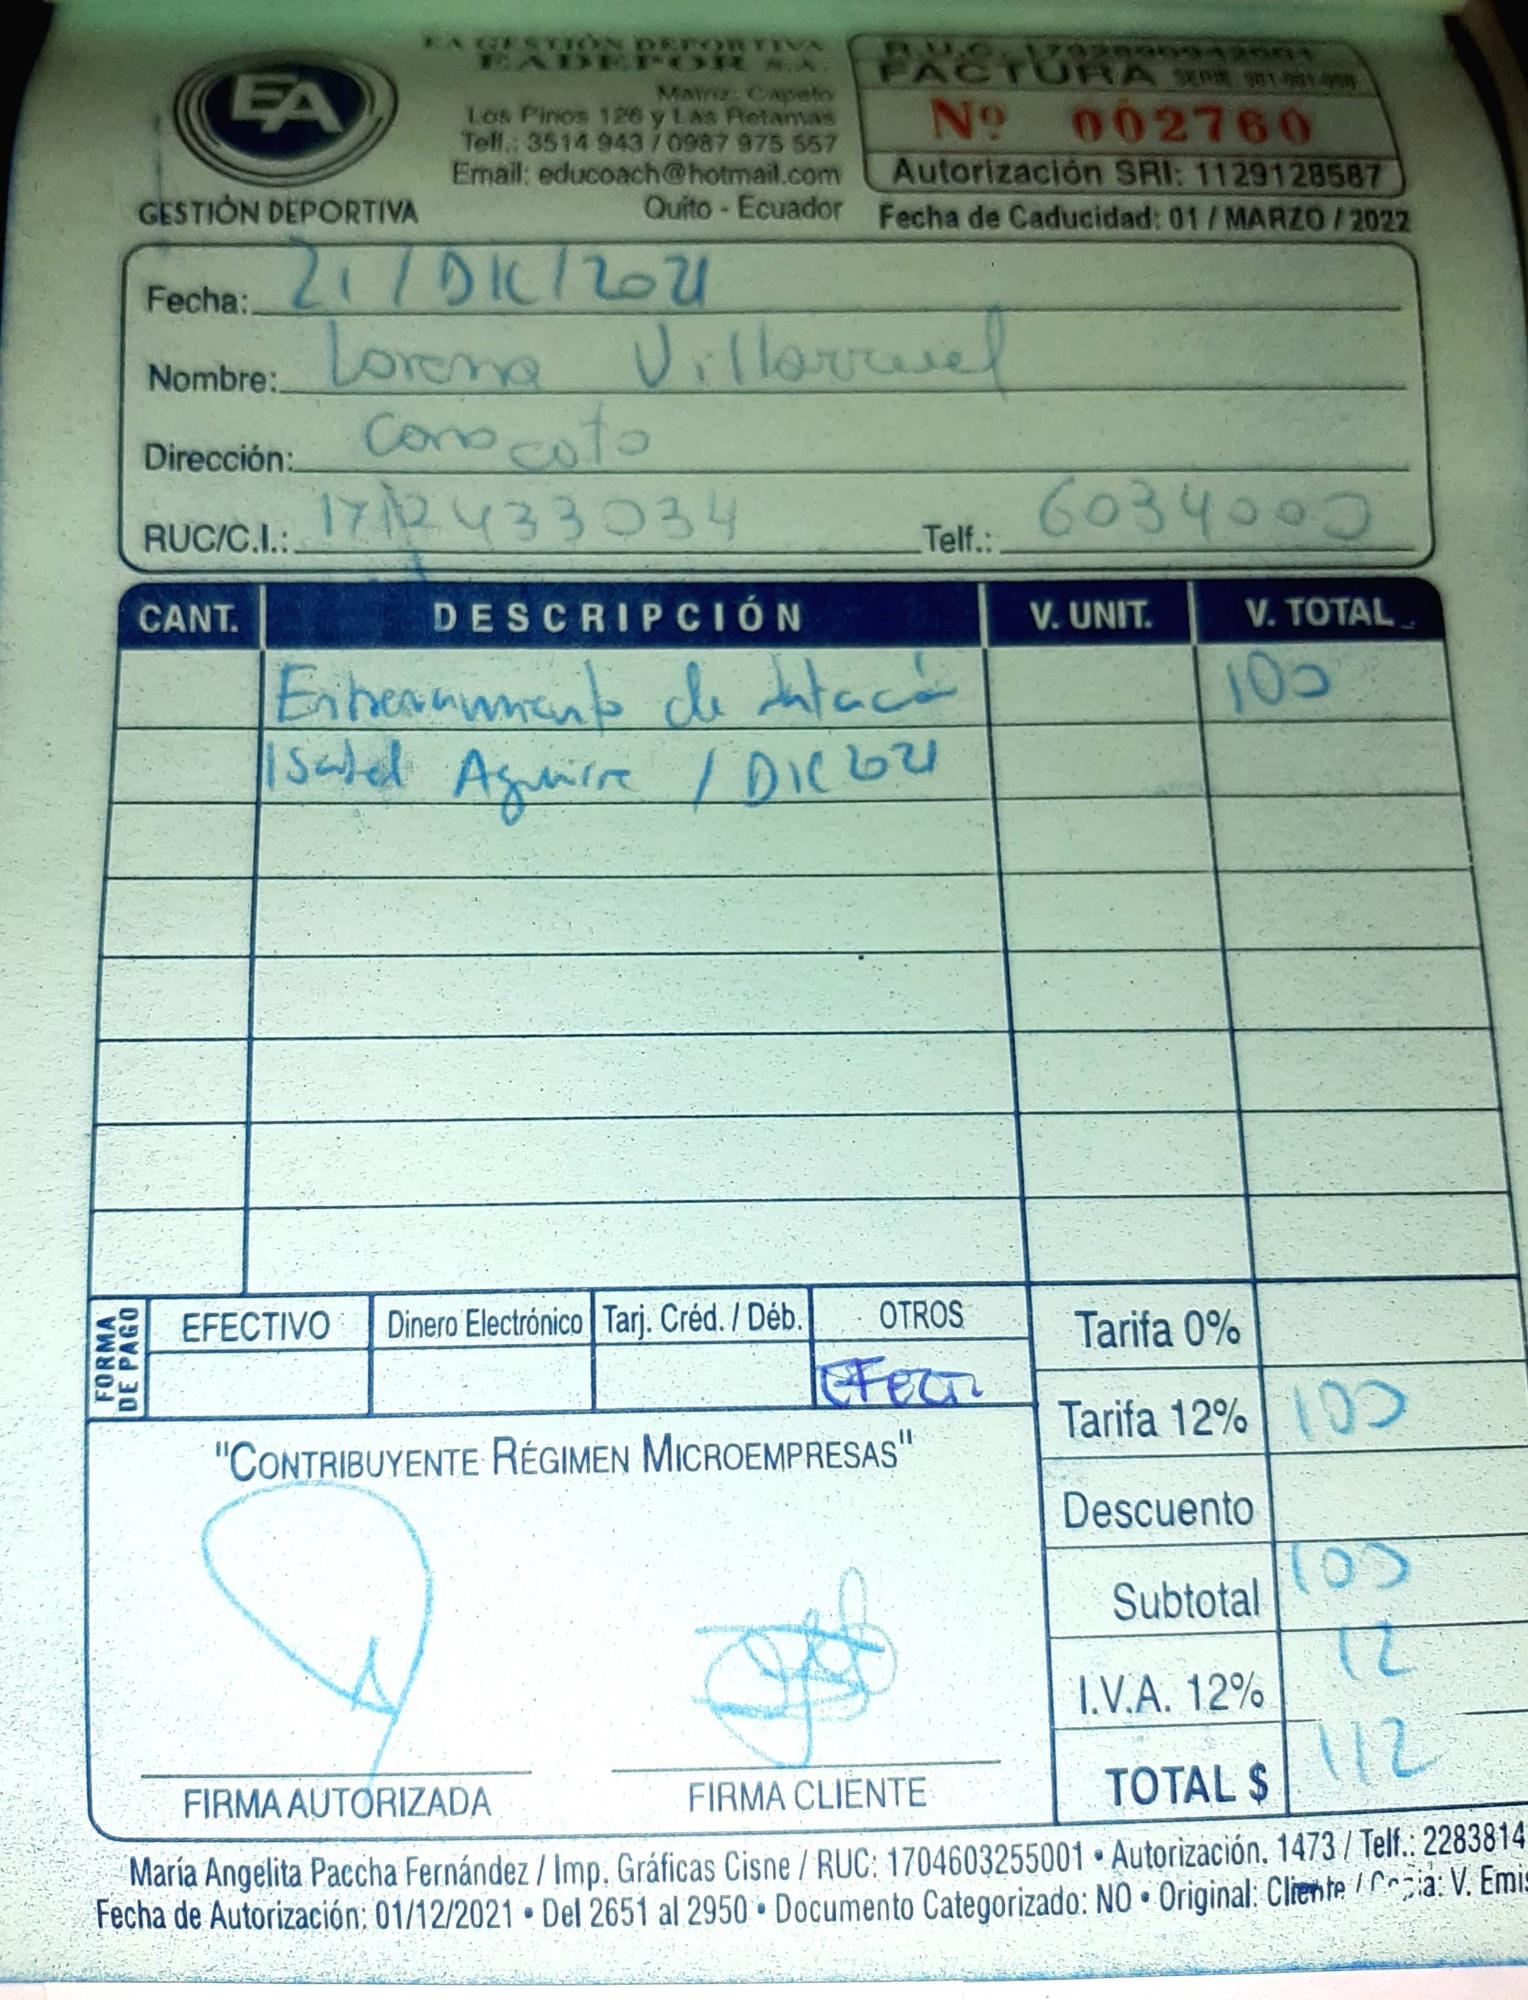 EA GESTIÓN DEPORTIVA
EADEPOR S.A.
Matriz: Capelo
Los Pinos 126 y Las Retamas
Telf.: 3514 943 / 0987 975 557
Email: educoach@hotmail.com
Quito - Ecuador
EA
GESTIÓN DEPORTIVA
R.U.C. 1792890942001
FACTURA SERIE 001-001-000
Nº 002760
Autorización SRI: 1129128587
Fecha de Caducidad: 01 / MARZO / 2022
Fecha: 21 / DIC / 2021
Nombre: Lorena Villarruel
Dirección: Conocoto
RUC/C.I.: 1712433034 Telf.: 6034000
CANT. DESCRIPCIÓN V. UNIT. V. TOTAL
Entrenamiento de natació 100
Isabel Aguirre / DIC 2021
FORMA DE PAGO
EFECTIVO Dinero Electrónico Tarj. Créd. / Déb. OTROS
EFECTI
Tarifa 0%
Tarifa 12% 100
Descuento
Subtotal 100
I.V.A. 12% 12
TOTAL $ 112
"CONTRIBUYENTE RÉGIMEN MICROEMPRESAS"
FIRMA AUTORIZADA FIRMA CLIENTE
María Angelita Paccha Fernández / Imp. Gráficas Cisne / RUC: 1704603255001 • Autorización. 1473 / Telf.: 2283814
Fecha de Autorización: 01/12/2021 • Del 2651 al 2950 • Documento Categorizado: NO • Original: Cliente / Copia: V. Emis